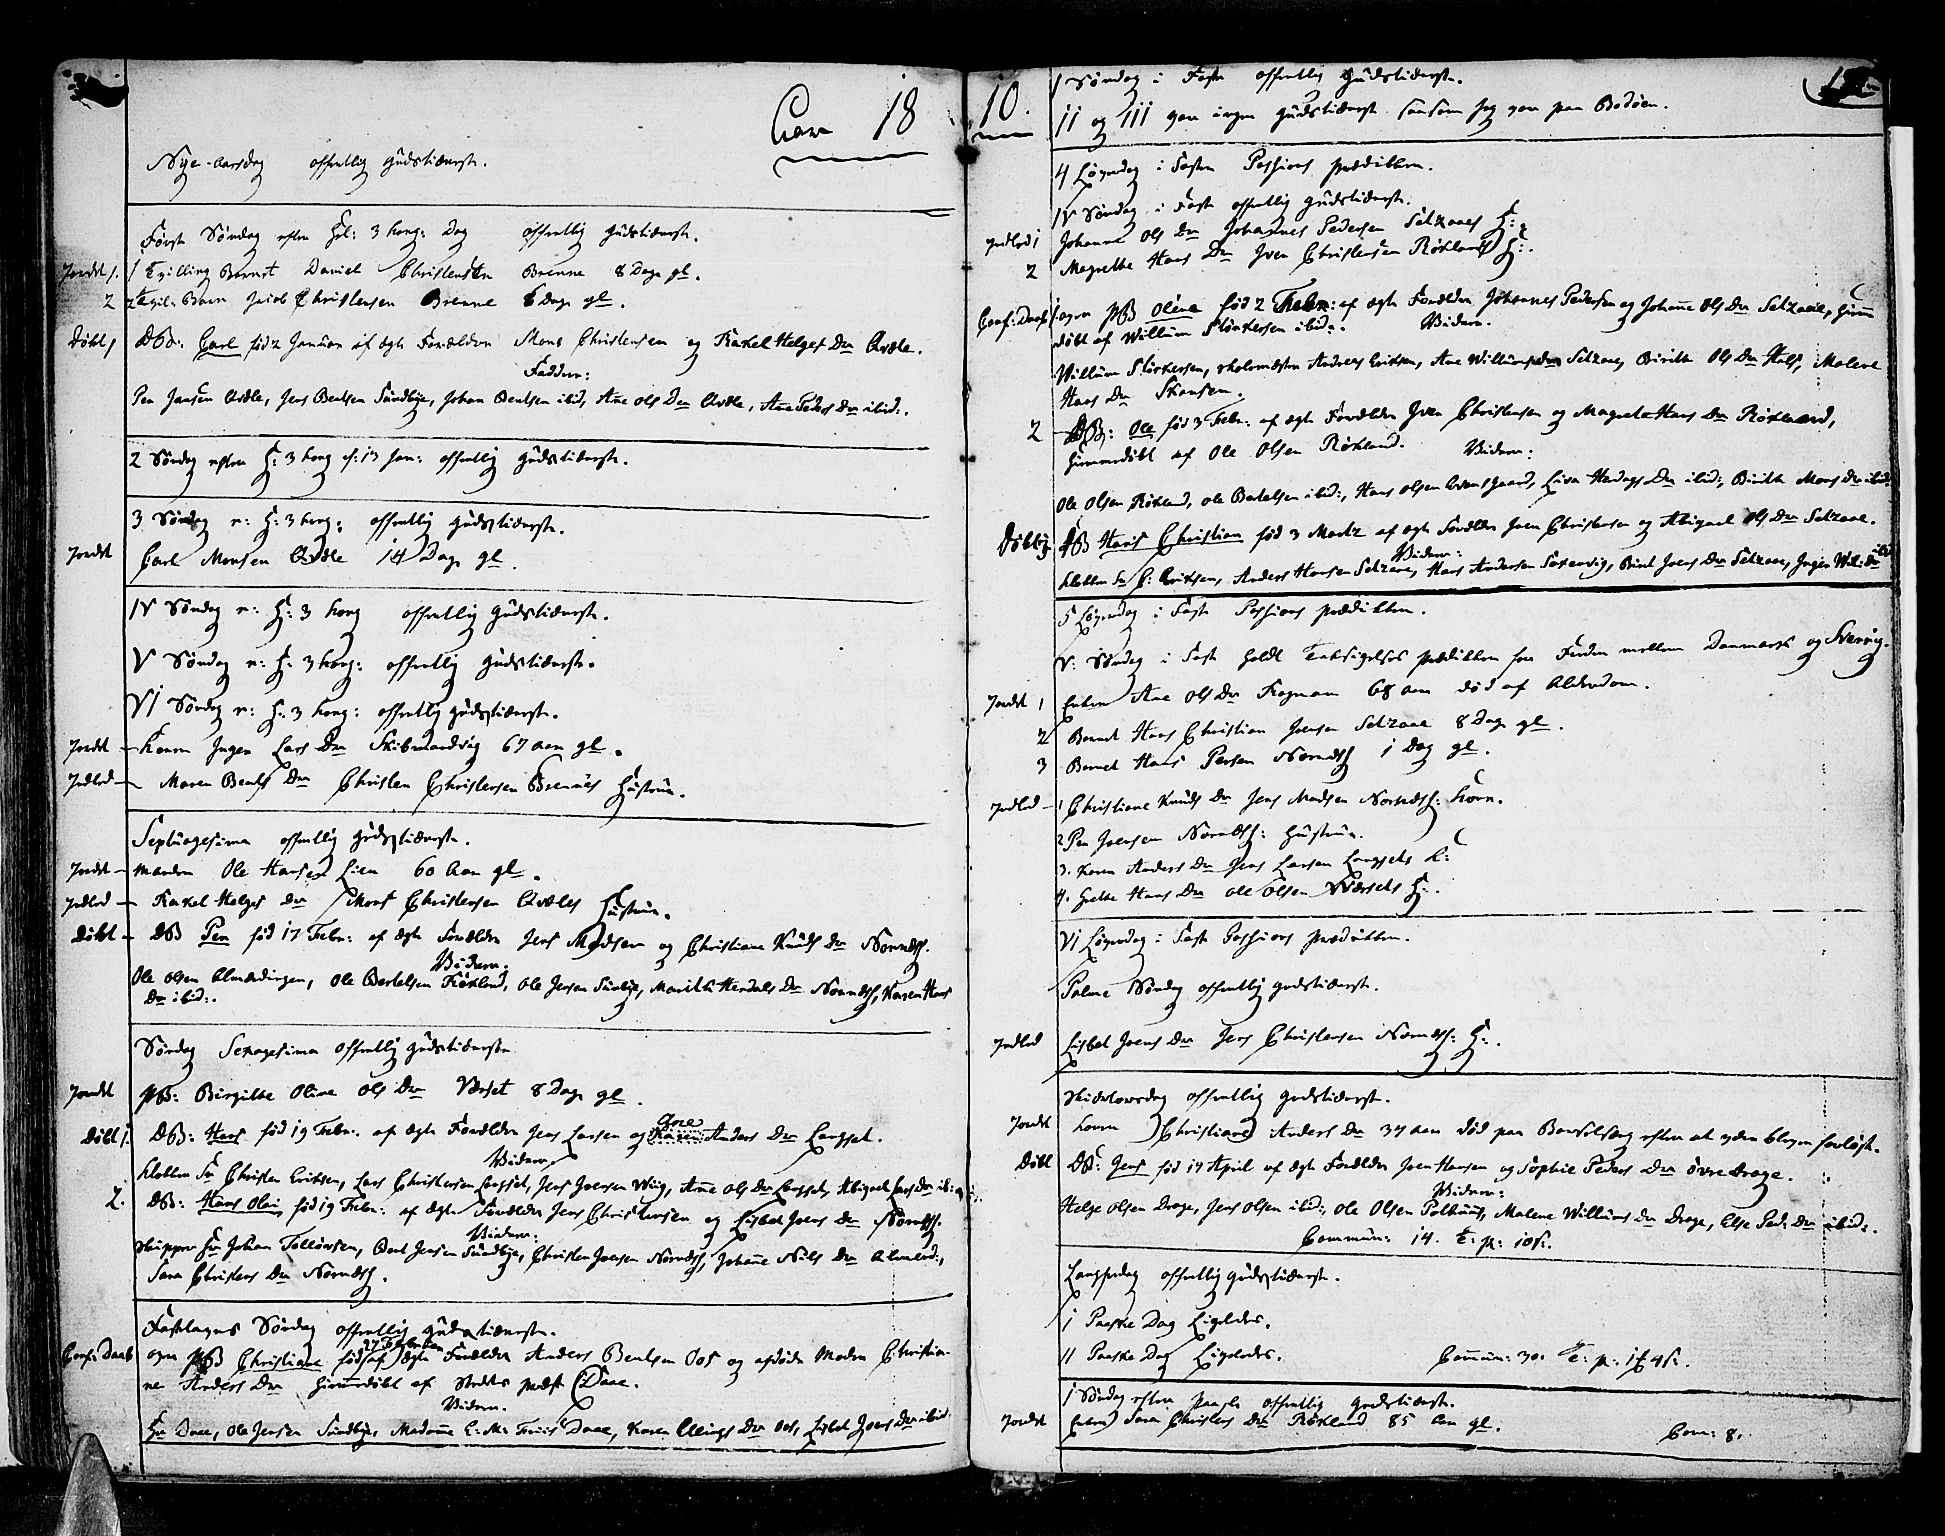 Aar 1810.
Nye-aarsdag offentlig Gudstieneste.
Først Søndag efter Hel: 3 kong: Dag offentlig Gudstieneste.
Jordet 1. 1 Tvilling Barnet Daniel Christensen Brenne 8 Dage gl.
2 2 Tvil: Barn Jacob Christensen Brenne 8 Dage gl.
Døbt 1 DB: Carl född 2 Januar af ægte Forældre Mons Christensen og Rakel Helges Dr Qvæle.
Faddere:
Peer Jansen Qvæle, Jens Bentsen Sundbye, Johan Bentsen ibid, Ane Ols Dr Qvæle, Ane Peders Dr ibid:.
2 Søndag efter H: 3 kong offentlig Gudstieneste.
3 Søndag e: H: 3 kong: offentlig Gudstieneste.
Jordet Carl Monsen Qvæle 14 Dage gl.
IV Søndag e: H: 3 kong offentlig Gudstieneste.
V Søndag e: H: 3 kong: offentlig Gudstieneste.
VI Søndag e: H: 3 kong: offentlig Gudstieneste.
Jordet – Konen Inger Lars Dr 67 aar gl.
Indled – Maren Bents Dr Christen Christensen Brennes Hustrue.
Septuagesima offentlig Gudstieneste.
Jordet – Manden Ole Hansen Lien 60 Aar gl.
Indled – Rakel Helges Dr Mons Christensen Qvæles Hustrue.
Døbt – DB Peer fød 17 Febr: af ægte Forældre Jens Madsen og Christiane Knuds Dr Nornæs.
Viderer:
Ole Olsen Almedingen, Ole Bertelsen Røkland, Ole Jensen Sundbye, Marith Hendriks Dr Nornæs, Karen Hans
Dr ibid:.
Søndag Sexagesima offentlig Gudstieneste
Jordet PB: Birgitte Oline Ols Dr Værset 8 Dage gl.
Døbt 1. DB: Hans fød 19 Febr: af ægte Forældre Jens Larsen og Karen Anders Dr Langset.
Viderer
Klokker Sr Christen Eriksen, Lars Christensen Langset, Jens Joensen Wiig, Ane Ols Dr Langset, Abigael Lars Dr ib:
2. DB: Hans Olai, fød 19 Febr: af ægte Forældre Jens Christensen og Lisbet Joens Dr Nornæs.
Viderer:
Skipper Hr Johan Tollevsen, Bent Jensen Sundbye, Christen Joensen Nornæs, Johanne Nils Dr Almend:,
Sara Christens Dr Nornæs.
Fastelagns Søndag offentlig Gudstieneste.
27 Februar
Conf: Daab PB Christiane fød af ægte Forældre Anders Bentsen Oos og afdøde Moder Christia-
ne Anders Dr hiemmedøbt af Stedets Præst Daae.
Viderer.
Hr Daae, Ole Jensen Sundbye, Madame E: M: Friis Daae, Karen Ellings Dr Oos, Lisbet Joens Dr ibid.
1 Søndag i Faste offentlig Gudstieneste.
II og III var ingen Gudstieneste saasom jeg var paa Bodøen.
4 Løverdag i Fasten Passions prædikken.
IV Søndag i Faste offentlig Gudstieneste.
Indled 1 Johanne Ols Dr Johannes Pedersen Selzaaes H:
2 Magrethe Hans Dr Iver Christensen Røklands H:.
Conf: Daab 1. PB Oline fød 2 Febr: af ægte Forældre Johannes Pedersen og Johane Ols Dr Selzaae, hiemme
døbt af Willum Størkersen ibid:. Viderer.
Willum Størkersen, Skolemester Anders Eriksen, Ane Willumsdr Selzaae, Birith Ols Dr Hals, Malene
Hans Dr Skansen.
2 DB: Ole fød 3 Febr: af ægte Forældre Iver Christensen og Magrete Hans Dr Røkland,
hiemmedøbt af Ole Olsen Røkland. Viderer:
Ole Olsen Røkland, Ole Bertelsen ibid:, Hans Olsen Evensgaard, Lisa Hendrigs Dr ibid:, Birith Mons Dr ibid:
Døbt DB Hans Christian fød 3 Martz af ægte Forældre Joen Christensen og Abigael Ols Dr Selzaae.
Viderer:
Klokker Sr C: Eriksen, Anders Hansen Selzaae, Hans Andersen Saxenvig, Birit Joens Dr Selzaae, Inger Wil: Dr ibid
5 Løverdag i Faste Passions prædikken.
V: Søndag i Faste holdt Taksigelses prædikken for Freden mellem Danmark og Sverrig.
Jordet 1 Enken Ane Ols Dr Fragnam 68 aar død af Alderdom.
2 Barnet Hans Christian Joensen Selzaae 8 Dage gl.
3 Barnet Hans Persen Nornæs 1 Dag gl.
Indled – 1 Christiane Knuds Dr Jens Madsen Nornæs: Kone.
2 Peer Joensen Nornæs: Hustrue.
3. Karen Anders Dr Jens Larsen Langsets K:
4. Grethe Hans Dr Ole Olsen Værsets H:.
VI Løverdag i Faste Passions prædikken.
Palme Søndag offentlig Gudstieneste.
Indled Lisbet Joens Dr Jens Christensen Nornæs: H:.
Skiertorsdag offentlig Gudstieneste.
Jordet Konen Christiane Anders Dr 37 aar død paa Barselseng efter at være bleven forløst.
Døbt DB: Jens fød 17 April af ægte Forældre Joen Hansen og Sophie Peders Dr Øvre Drage.
Viderer:
Helge Olsen Drage, Jens Olsen ibid:, Ole Olsen Polhuus, Malene Willums Dr Drage, Else Ped: Dr ibid:.
Commun: 14.
Langfredag offentlig Gudstieneste.
I Paaske Dag Ligeledes.
II Paaske Dag Ligeledes. Commun: 30.
1 Søndag efter Paaske offentlig Gudstieneste.
Jordet Enken Sara Christens Dr Røkland 85 Aar gl. Com: 8.